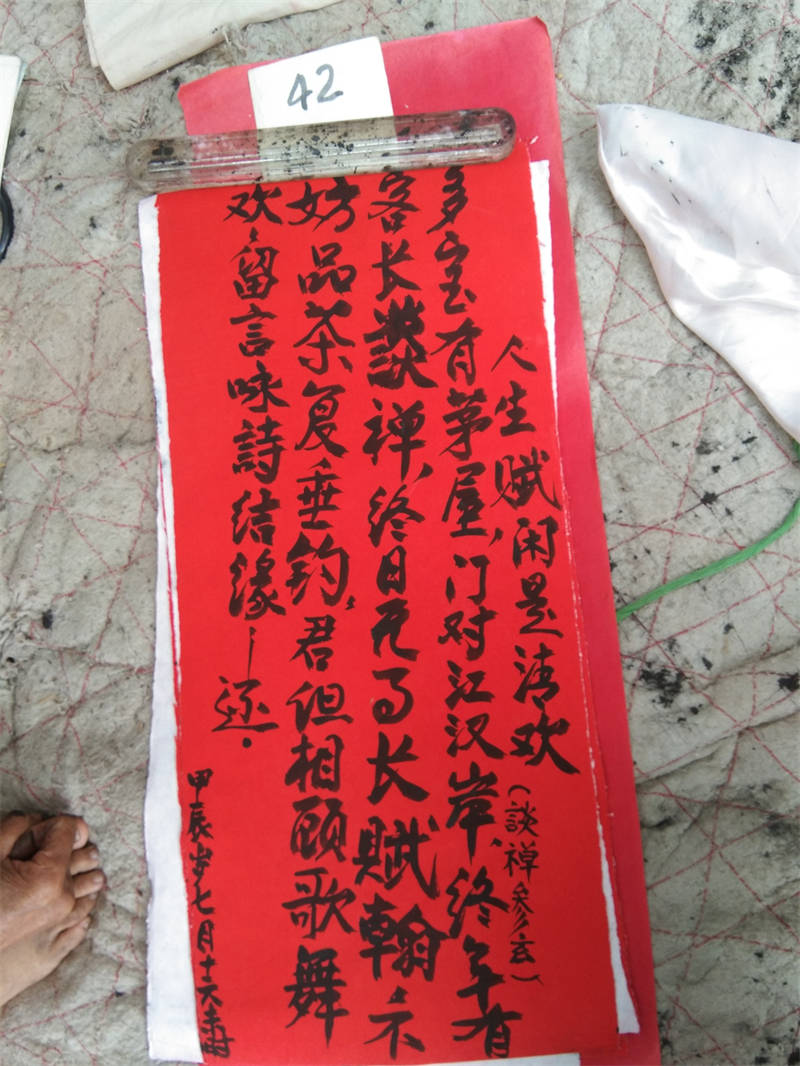 42
人生赋闲是清欢
(談禅参玄)
多宝有茅屋,门对江汉岸,终年有
客长談禅,终日无事长赋翰,不
妨品茶复垂钓,君但相顾歌舞
欢,留言味詩结缘一还.
甲辰岁七月十六